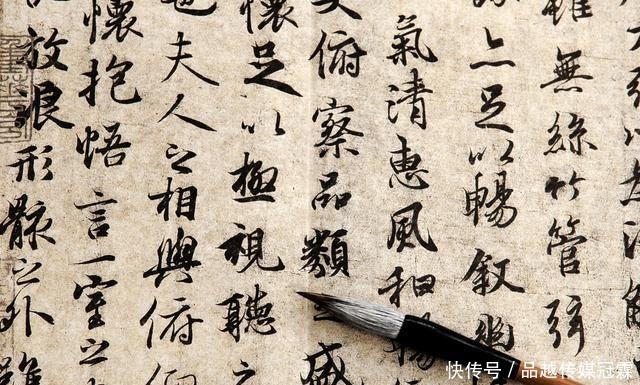 雖無絲竹管弦
亦足以暢叙幽
氣清惠風和暢
俯察品類之盛
懷足以極視聽之
也夫人之相與俯仰
懷抱悟言一室之
放浪形骸之外雖
快传号 / 品越传媒冠霖